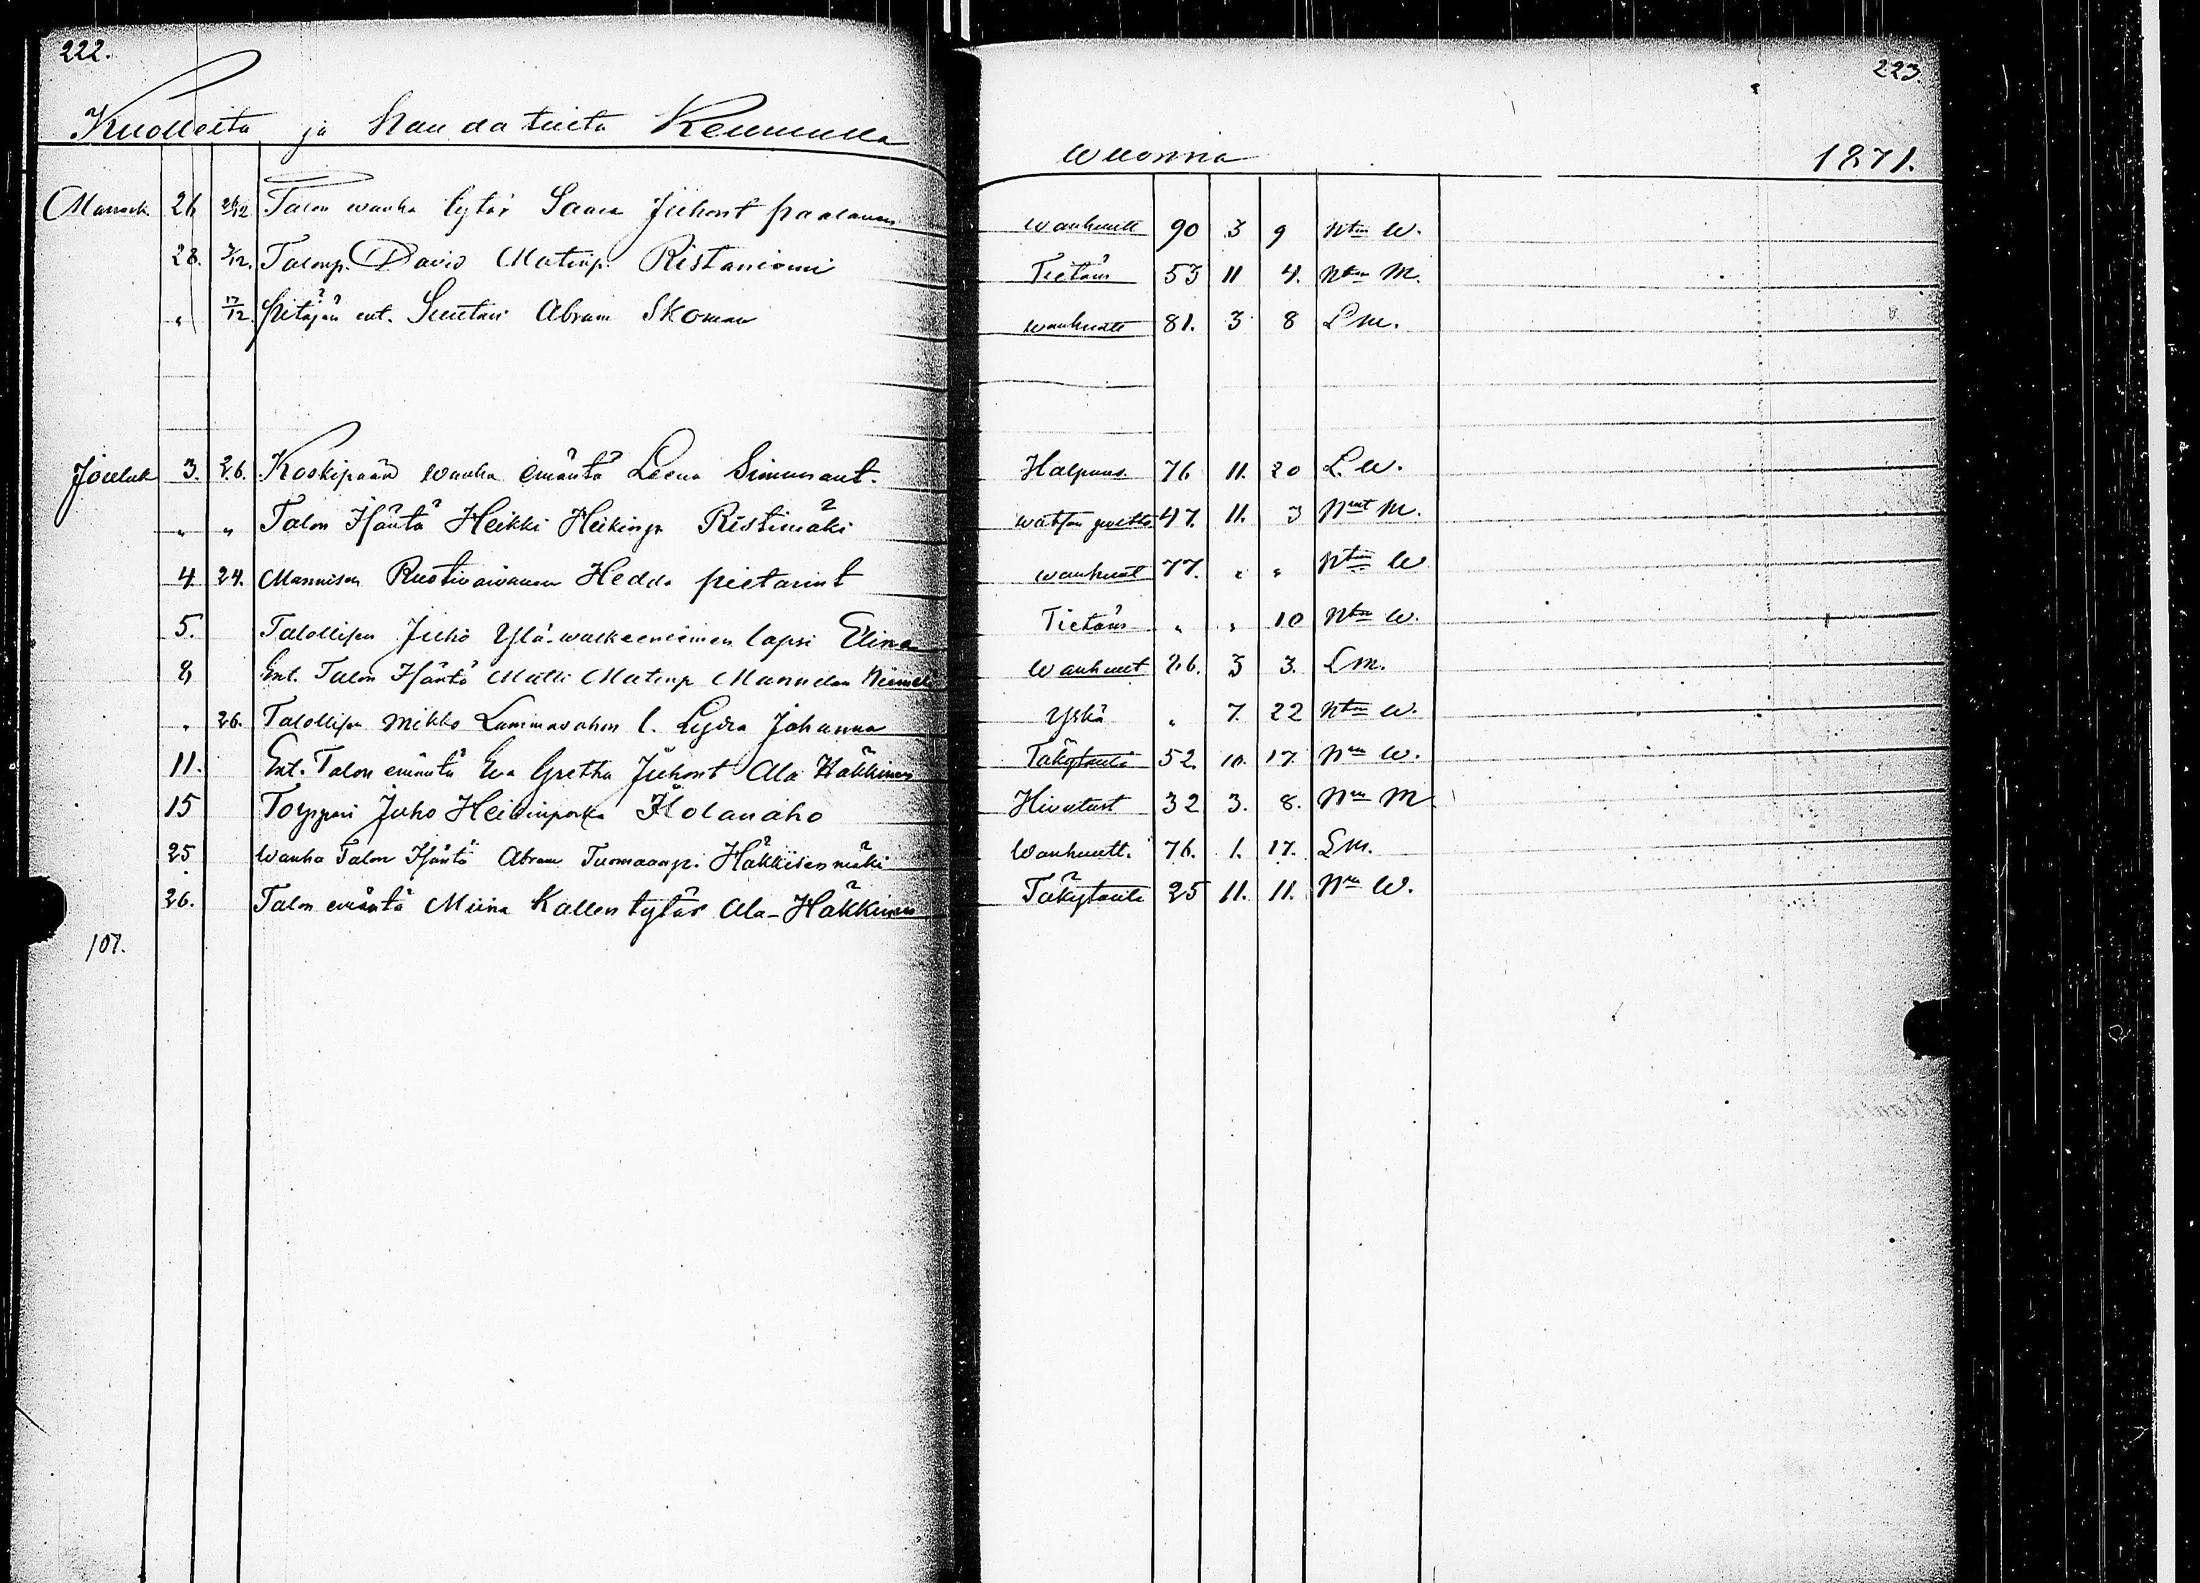 222.
223.
Kuolleita ja haudatuita Keuruulla
wuonna 1871.
Marrask. 26 26/12 Talon wanha tytär Saara Juhont Paalanen wanhuutt 90 3 9 Ntn W.
28. 3/12. Talonp. David Matinp. Ristaniemi Tietäm 53 11 4. Ntn M.
" 17/12 Pitäjän ent. Suutari Abram Skoman wanhuutt 81. 3 8 L m.
Jouluk 3. 26. Koskipään wanha emäntä Leena Simunant. Halpaus. 76 11. 20 L. W.
" " Talon Isäntä Heikki Heikinp Ristimäki watsan 47. 11. 3 Nmt M.
4. 24. Mannisen Ruotivaivanen Hedda Pietarint wanhuut 77. " " Ntn W
5. Talollisen Juho Ylä-walkeeniemen lapsi Elina Tietäm " " 10 Ntn W.
8, Ent. Talon Isäntä Matti Matinp Mannilan Wanhuut 86. 3 3. L m.
" 26. Talollisen Mikko Lamminahon l. Lydia Johanna Yskä " 7. 22 Ntn W.
11. Ent. Talon emäntä Eva Gretha Juhont Ala Häkkinen Täkytauti 52. 10. 17. Nm W.
15 Torppari Juho Heikinpoika Hiivatust 32 3. 8. Nm M
25 Wanha Talon Isäntä Abram Tuomaanp. Häkkisenmäki Wanhuutt. 76. 1. 17. L m.
26. Talon emäntä Miina Kallen tytär Ala-Häkkinen Täkytauti 25 11. 11. Nm W.
107.